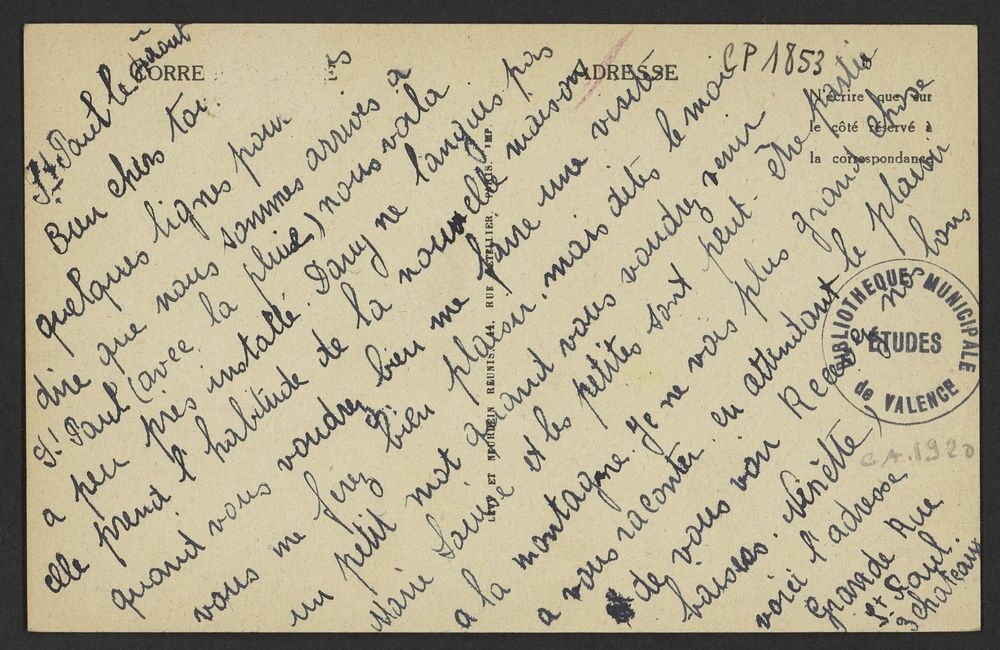 St Paul le août
Bien chers toi.
quelques lignes pour
dire que nous sommes arrivés à
St Paul (avec la pluie) nous voila
a peu près installé. Dany ne languis pas
elle prend l'habitude de la nouvelle maison
quand vous voudrez bien me faire une visite
vous me ferez bien plaisir, mais dites le moi
un petit mot quand vous voudrez venir
Marie Louise et les petites sont peut-être partie
a la montagne. Je ne vois plus grand chose
a vous raconter en attendant le plaisir
de vous voir Recevez nos bons
baisers. Ninette
voici l'adresse
Grande Rue
St Paul
3 chateaux
CORRE
ADRESSE
CP1853
N'écrire que sur
le côté réservé à
la correspondance
LEVY ET NEURDEIN RÉUNIS, 44, RUE LETELLIER, PARIS. IMP
BIBLIOTHEQUE MUNICIPALE
ÉTUDES
de VALENCE
CA.1920